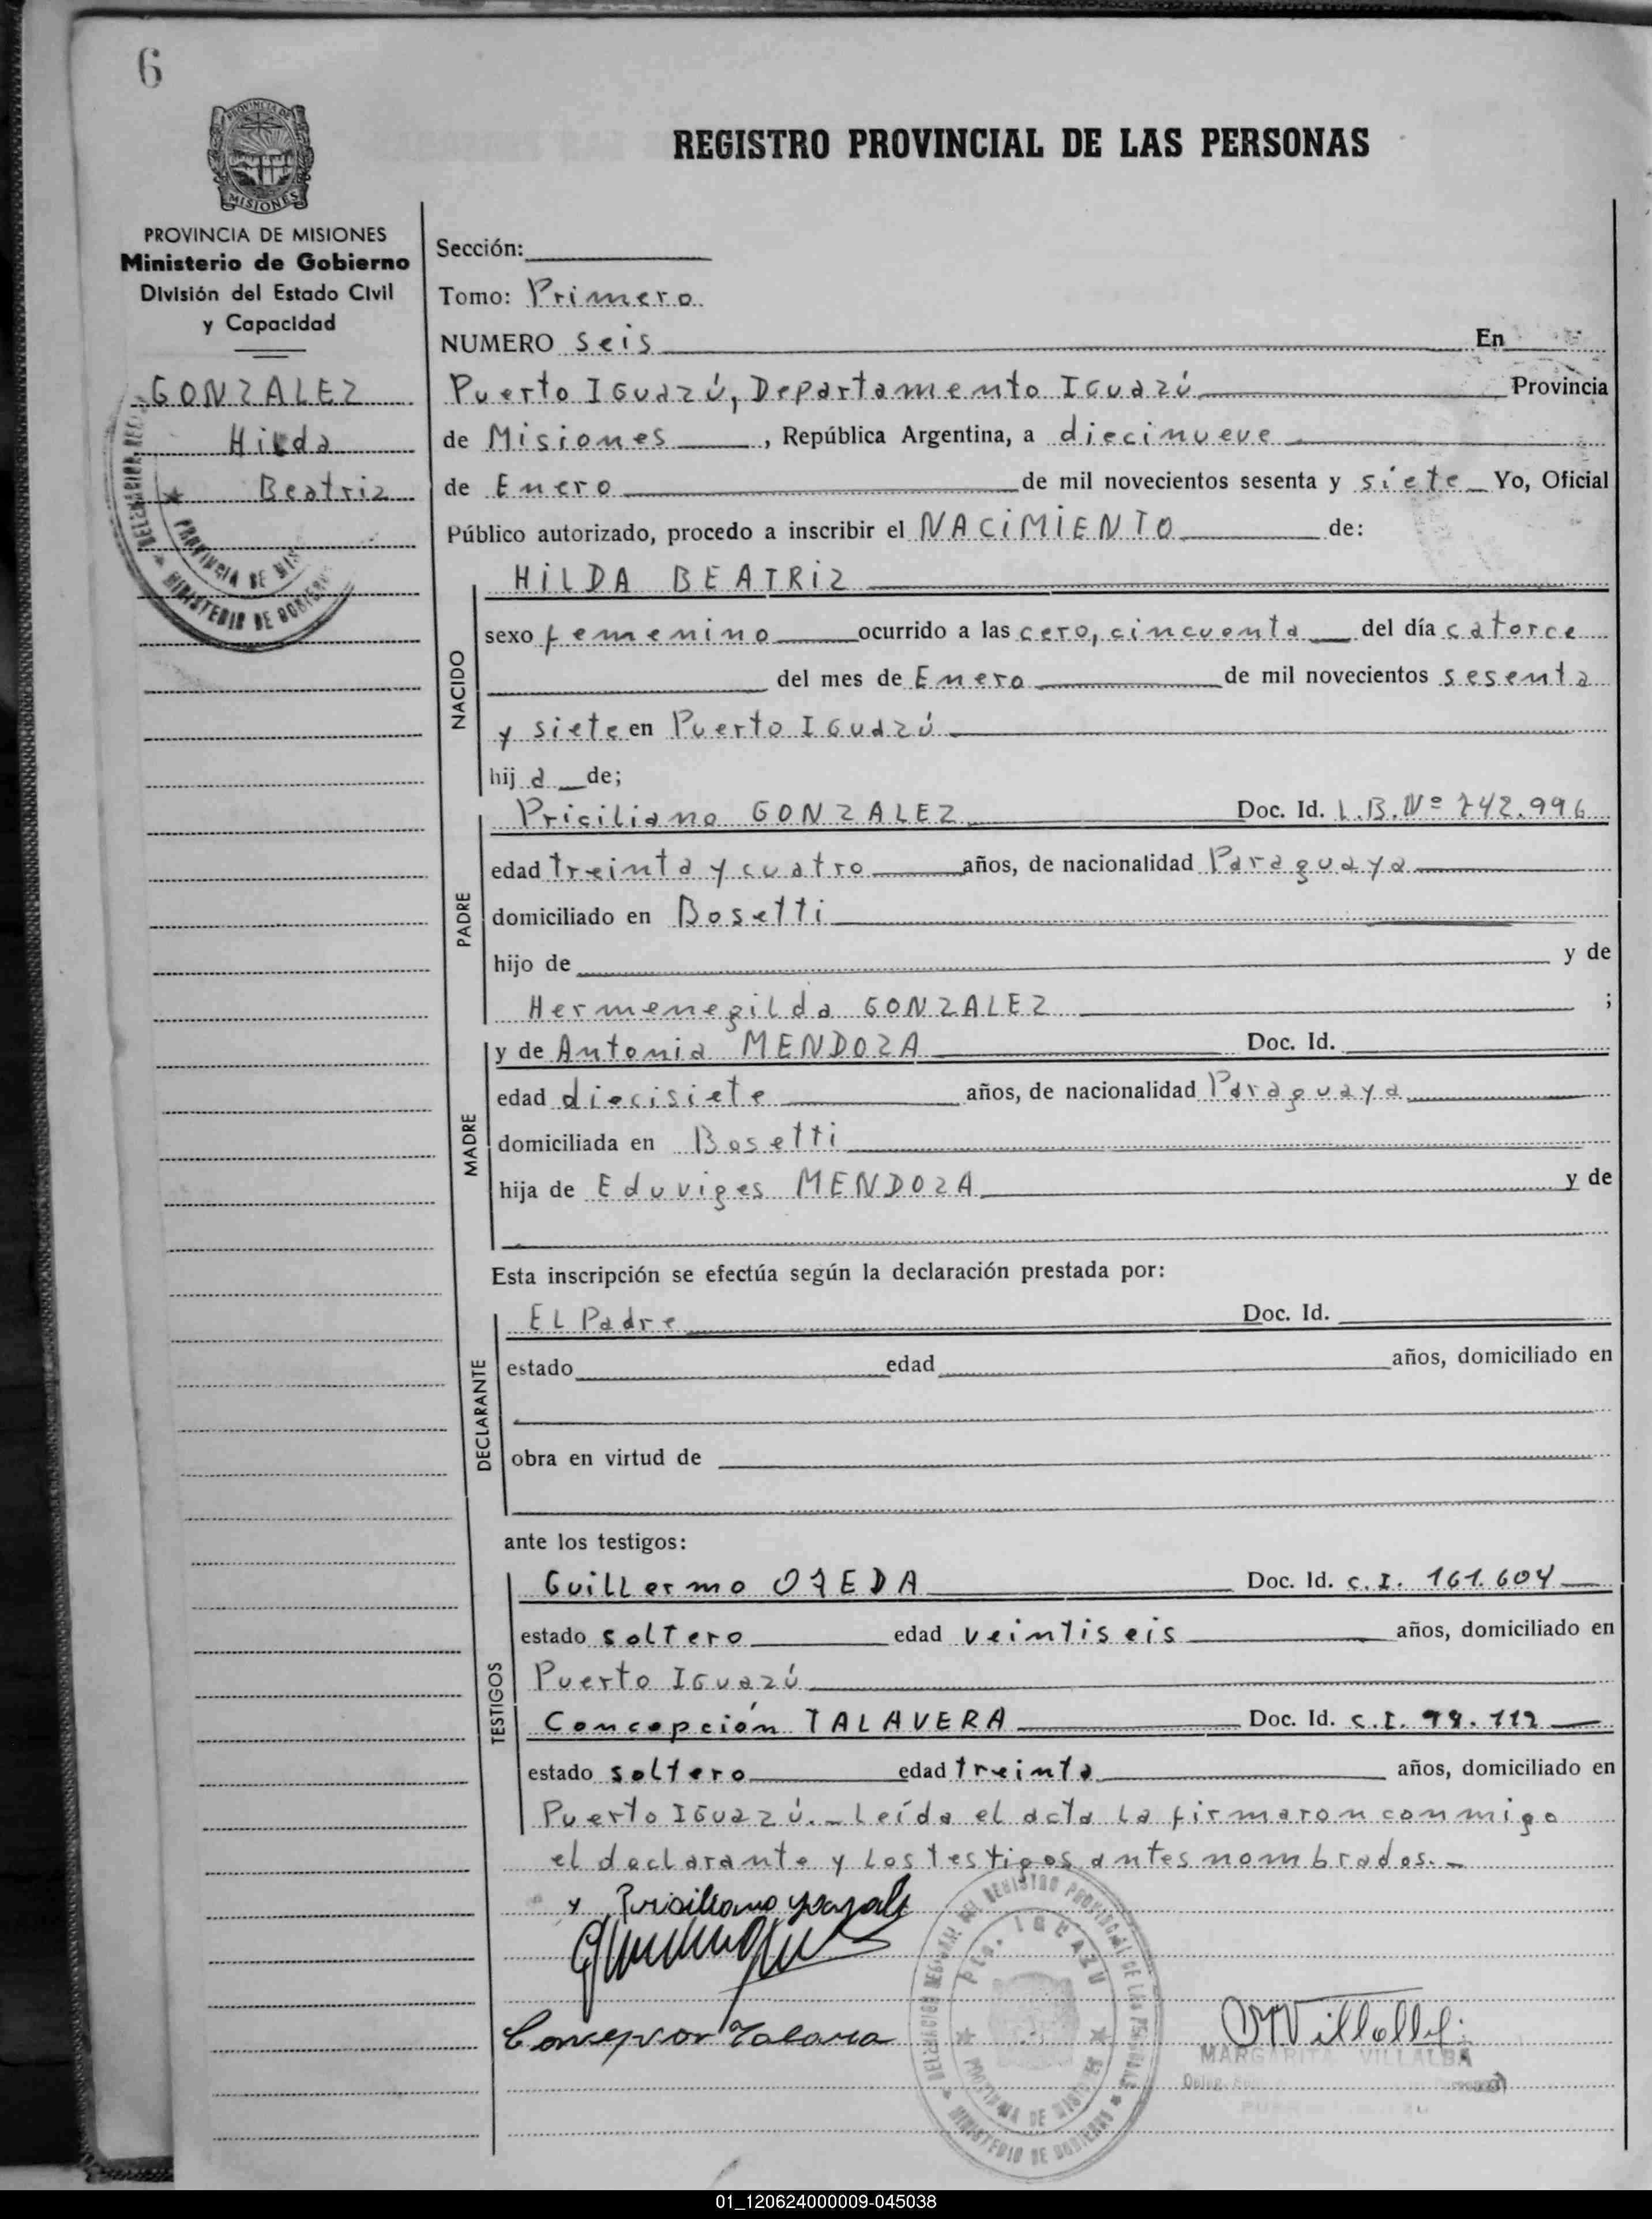 6
PROVINCIA DE
MISIONES
REGISTRO PROVINCIAL DE LAS PERSONAS
PROVINCIA DE MISIONES
Ministerio de Gobierno
División del Estado Civil
y Capacidad
GONZALEZ
Hilda
Beatriz
PROVINCIA DE
MINISTERIO DE GOBIERNO
Sección:
Tomo: Primero
NUMERO seis En
Puerto IGuazú, Departamento IGuazú Provincia
de Misiones , República Argentina, a diecinueve
de Enero de mil novecientos sesenta y siete Yo, Oficial
Público autorizado, procedo a inscribir el NACiMiENTO de:
HiLDA BEATRiZ
NACIDO
sexo femenino ocurrido a las cero, cincuenta del día catorce
del mes de Enero de mil novecientos sesenta
y siete en Puerto IGuazú
hij a de;
PADRE
Priciliano GONZALEZ Doc. Id. L.B.Nº 242.996
edad treinta y cuatro años, de nacionalidad Paraguaya
domiciliado en Bosetti
hijo de y de
Hermenegilda GONZALEZ ;
MADRE
y de Antonia MENDOZA Doc. Id.
edad diecisiete años, de nacionalidad Paraguaya
domiciliada en Bosetti
hija de Eduviges MENDOZA y de
Esta inscripción se efectúa según la declaración prestada por:
DECLARANTE
EL Padre Doc. Id.
estado edad años, domiciliado en
obra en virtud de
ante los testigos:
TESTIGOS
GuiLLermo OJEDA Doc. Id. C.I. 161.604
estado solTero edad veintiseis años, domiciliado en
Puerto IGuazú
Concepción TALAVERA Doc. Id. C.I. 98.112
estado soltero edad treinta años, domiciliado en
Puerto IGuazú.- Leída el acta la firmaron conmigo
el declarante y los testigos antes nombrados.-
y Prisiliano gonzale
Concepcion Talavera
DELEGACION REGIONAL DEL REGISTRO PROVINCIAL DE LAS PERSONAS
Pto. IGUAZU
PROVINCIA DE MISIONES
MINISTERIO DE GOBIERNO
MVillalba
MARGARITA VILLALBA
01_120624000009-045038